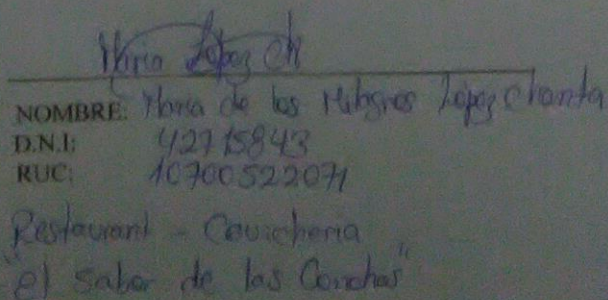 Maria Lopez Ch
NOMBRE: Maria de los Milagros López Chanta
D.N.I: 42715843
RUC: 10700522071
Restaurant - Cevicheria
"el sabor de las Conchas"